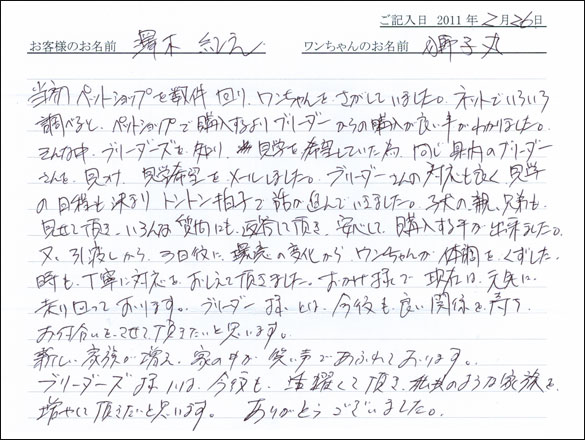 ご記入日 2011年2月26日
お客様のお名前 舞木 ワンちゃんのお名前 子丸
当初ペットショップを数件回り、ワンちゃんをさがしていました。ネットでいろいろ
調べると、ペットショップで購入するよりブリーダーからの購入が良い事がわかりました。
そんな中、ブリーダーズを知り、見学を希望していた為、同じ県内のブリーダー
さんを見つけ、見学希望をメールしました。ブリーダーさんの対応も良く、見学
の日程も決まりトントン拍子で話が進んでいきました。子犬の親、兄弟も
見せて頂き、いろんな質問にも返答して頂き、安心して購入する事が出来ました。
又、引渡しから、3日後に、環境の変化からワンちゃんが体調をくずした
時も、丁寧に対応をおしえて頂きました。おかげ様で現在は、元気に
走り回っております。ブリーダー様とは、今後も良い関係を持ち
お付合いをさせて頂きたいと思います。
新しい家族が増え、家の中が笑い声であふれております。
ブリーダーズ様には、今後も、活躍して頂き、私共のような家族を、
増やして頂きたいと思います。 ありがとうございました。